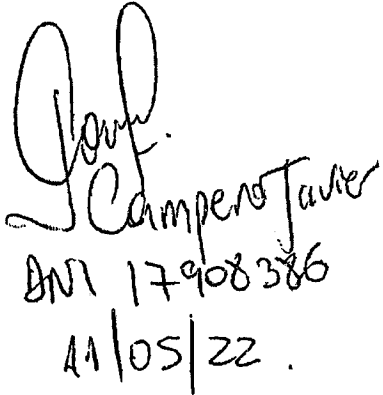 Campero Javier
DNI 17908386
11/05/22.